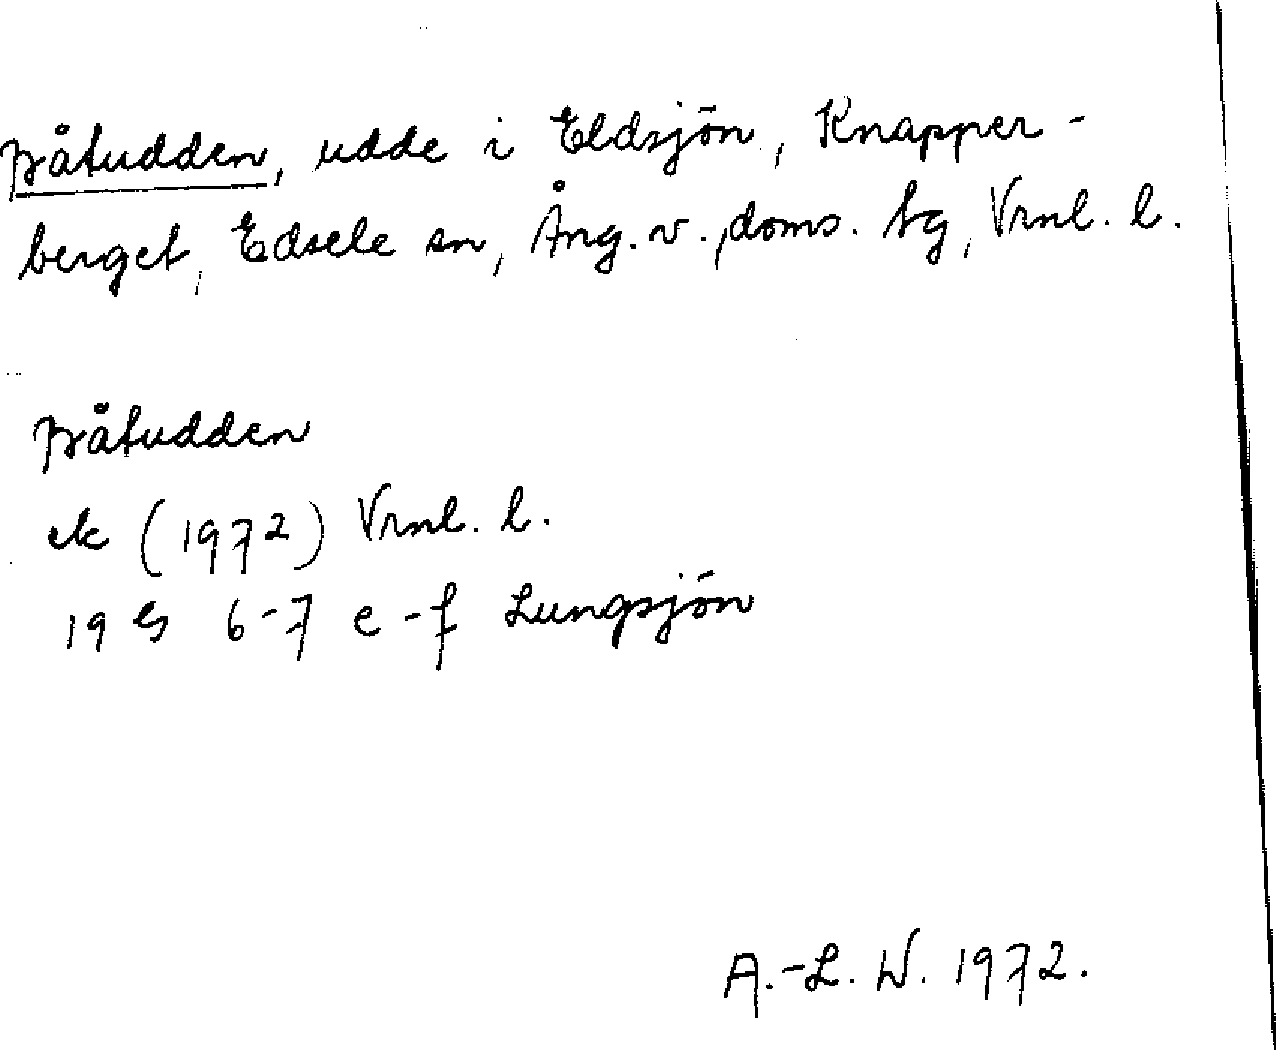 Båtudden, udde i Eldsjön, Knapper-
berget, Edsele sn, Ång. v., doms. tg, Vrnl. l.
Båtudden
ek (1972) Vrnl. l.
19 G 6-7 e-f Lungsjön
A.-L. W. 1972.